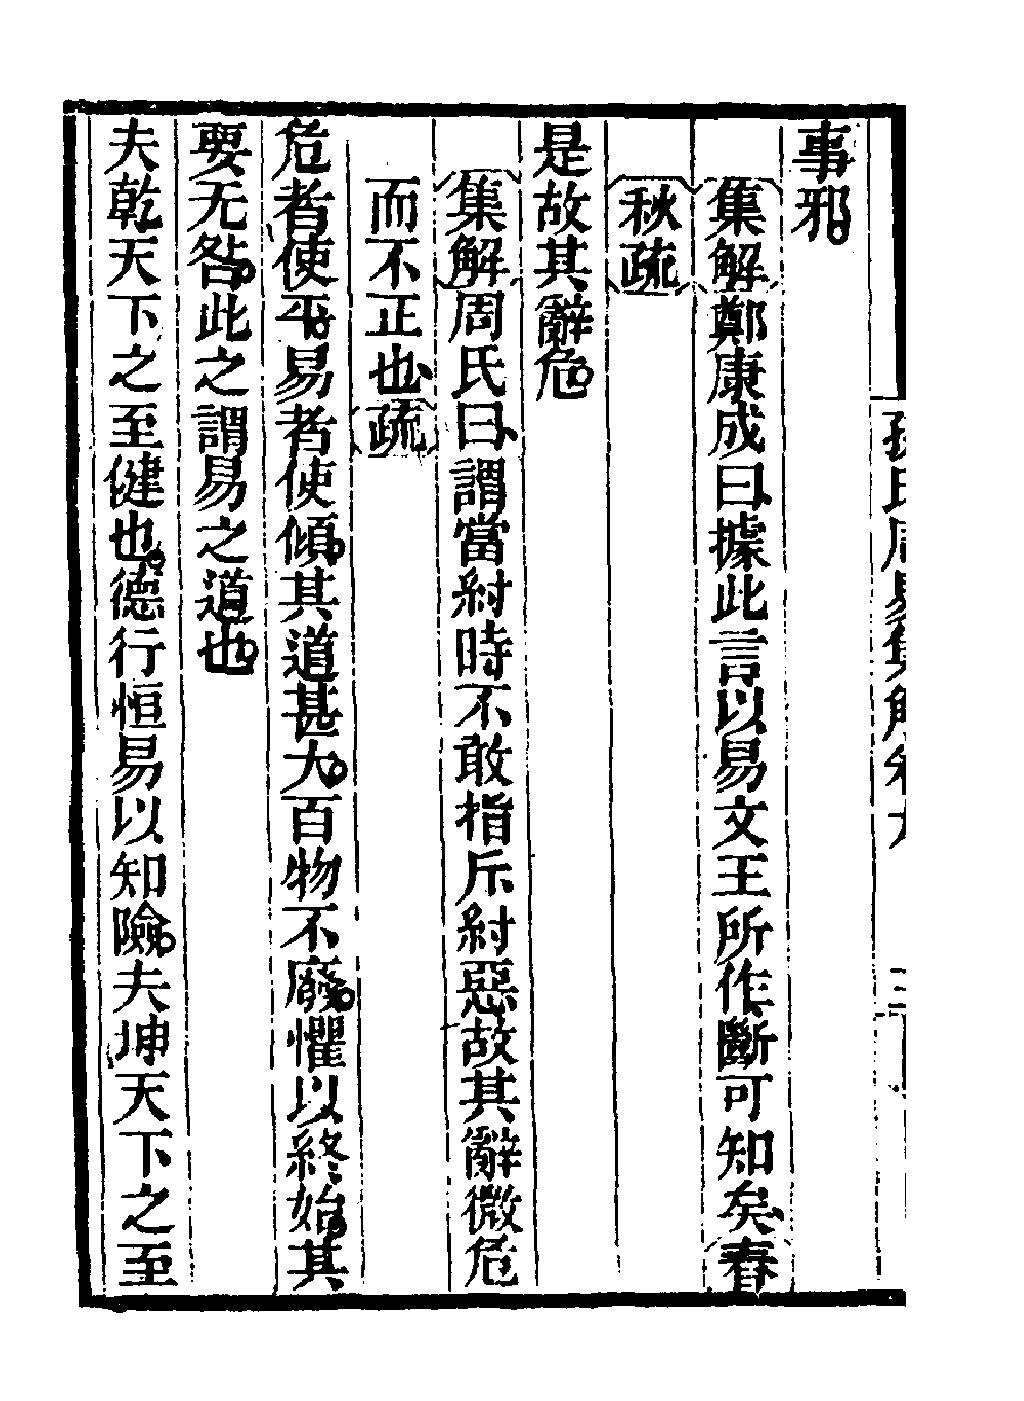 事邪
集解鄭康成曰據此言以易文王所作斷可知矣春
秋疏
是故其辭危
集解周氏曰謂當紂時不敢指斥紂惡故其辭微危
而不正也疏
危者使平易者使傾其道甚大百物不廢懼以終始其
要无咎此之謂易之道也
夫乾天下之至健也德行恒易以知險夫坤天下之至